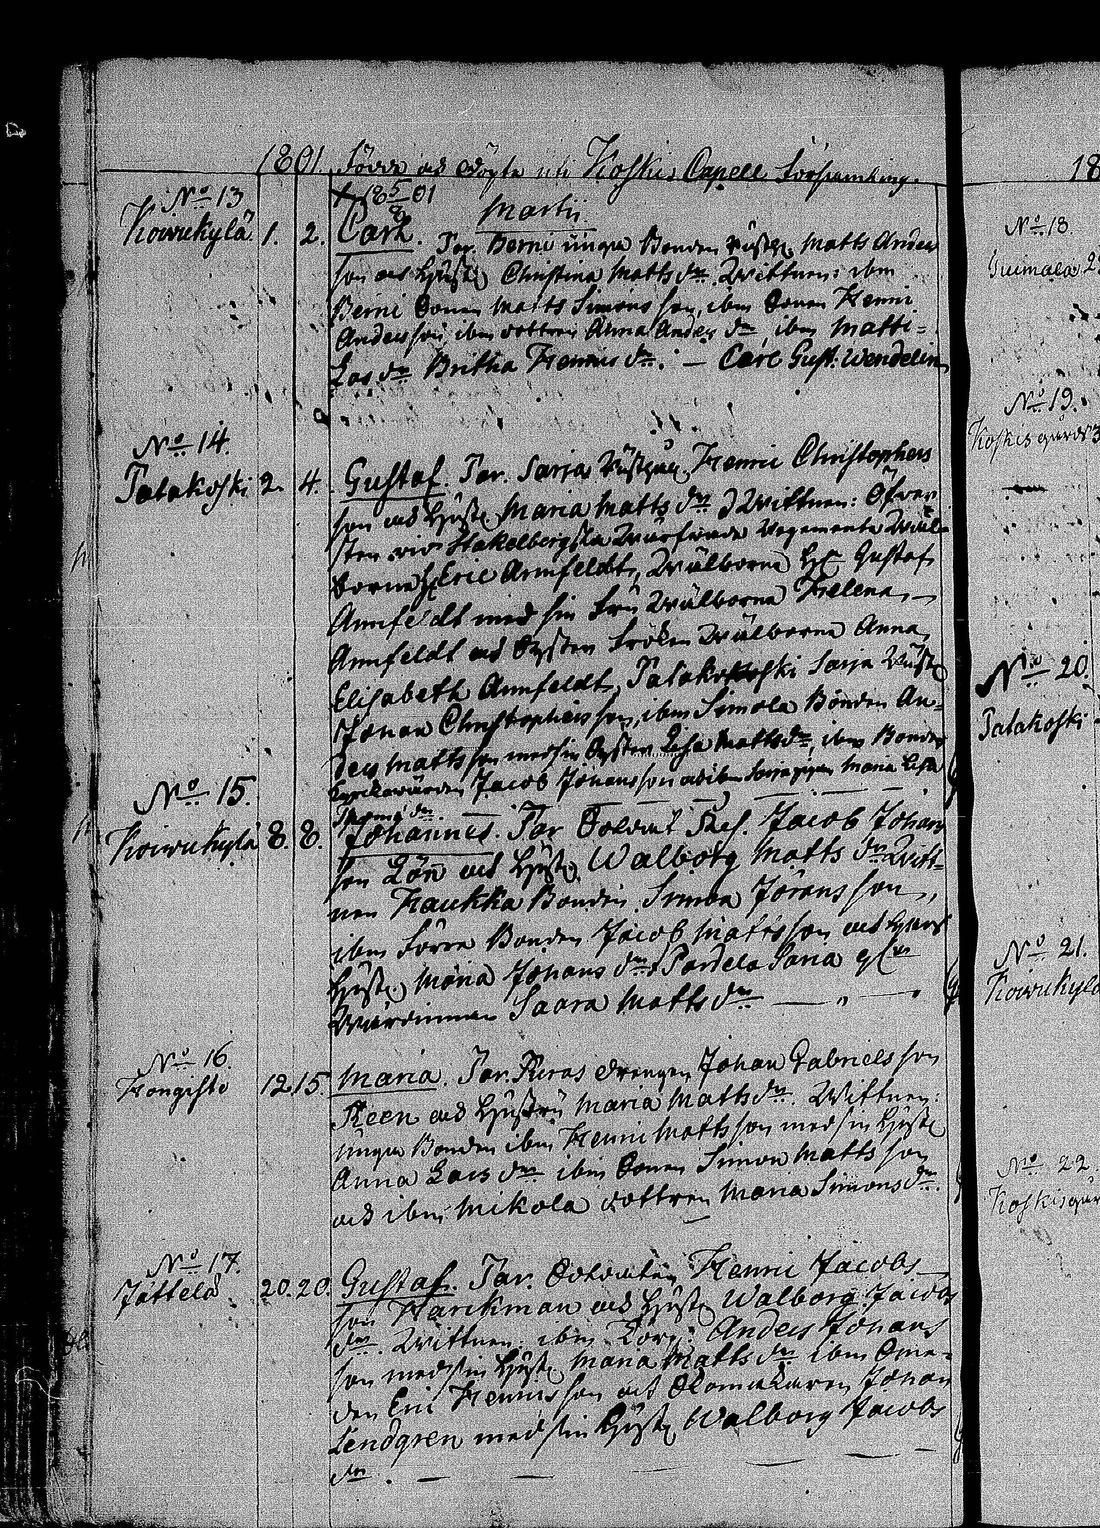 1801. Födde och döpte uti Koskis Capell Församling.
18 5/8 01
Martii
No 13
Koivukylä 1. 2. Carl. Par. Berni ungu Bonden Matts Anders
son och Hustr Christina Matts dr. Wittnen: ibm
Berni Sonen Matts Simons son, ibm Sonen Henric
Anders son ibm dottren Anna Anders dr ibm Matti=
Las dr Britha Henrics dr: — Carl Gust: Wendelin
No 14.
Patakoski 2. 4. Gustaf. Par. Sarja Henric Christophers
son och Hustr Maria Matts dr Wittnen: Öfver
sten vid Hakelbergska Wärfvade Regemente Wäl=
borne H Eric Armfeldt, Wälborne H Gustaf
Armfeldt med sin Fru Wälborne Helena
Armfeldt och Syster Fröken Wälborne Anna
Elisabeth Armfeldt, Patakoski Sarja
Johan Christophers son, ibm Simola Bonden An=
ders Matts son med sin Syster Lisa Matts dr, ibm Bonden
Jacob Johans son och ibm Maria Lisa
Thoma dr.
No 15.
Koivukylä 8. 8. Johannes. Par. Soldat Jacob Johans
son Lönn och Hustr Walborg Matts dr Witt=
nen Haukka Bonden Simon Jörans son,
ibm Förre Bonden Jacob Matts son och
Hustr Maria Johans dr Pardela
Wärdinnan Saara Matts dr —
No 16.
Hongisto 12. 15. Maria. Par. drengen Johan Gabriels son
Reen och Hustru Maria Matts dr. Wittnen:
unga Bonden ibm Henric Matts son med sin Hustr
Anna Lars dr ibm Sonen Simon Matts son
och ibm Mikola dottren Maria Simons dr.
No 17.
Jättelä 20. 20. Gustaf. Par. Soldaten Henric Jacobs
son Harckman och Hustr Walborg Jacobs
dr. Wittnen: ibm Anders Johans
son med sin Hustr Maria Matts dr ibm
den Eric Henrics son och Skomakaren Johan
Lendgren med sin Hustr Walborg Jacobs
dr. —
18
No 18.
No 19.
Koskisgård 3
No 20.
Patakoski
No 21.
Koivukylä
No 22.
Koskisgår